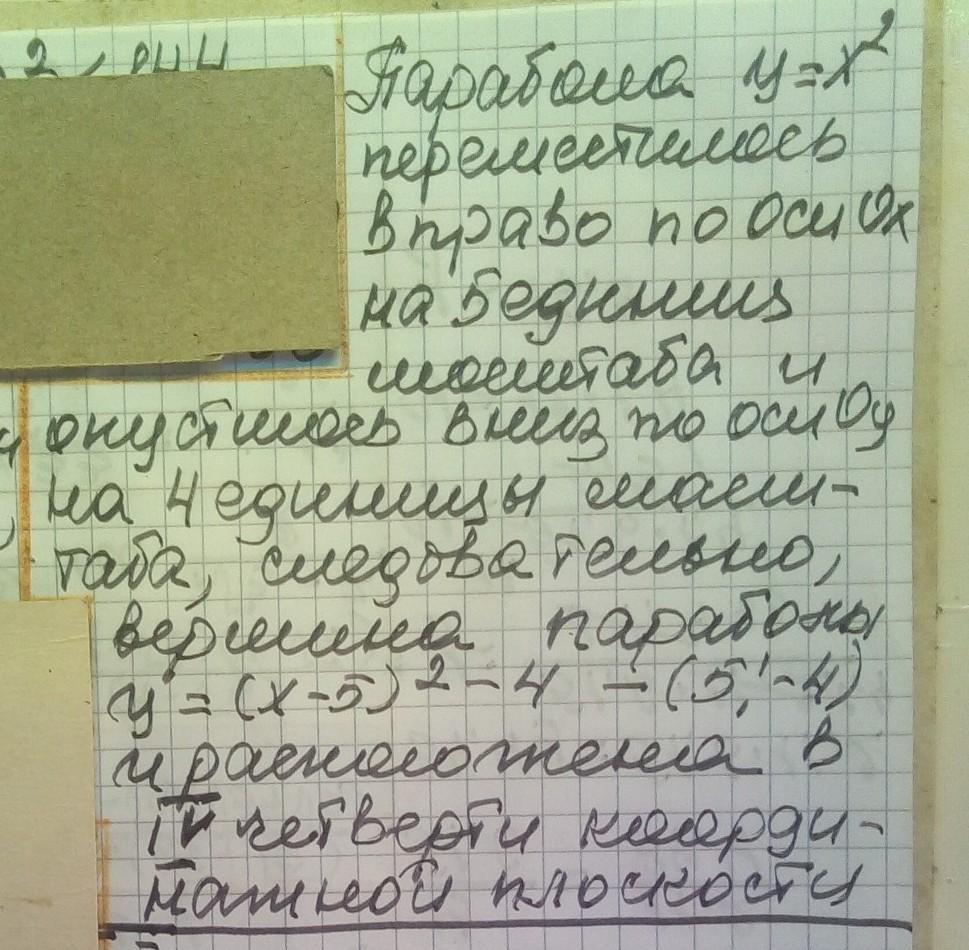 Парабола y=x²
переместилась
вправо по оси Ox
на 5 единиц
масштаба и
опустилась вниз по оси Oy
на 4 единицы масш-
таба, следовательно,
вершина параболы
y=(x-5)²-4 – (5;-4)
и расположена в
IV четверти коорди-
натной плоскости